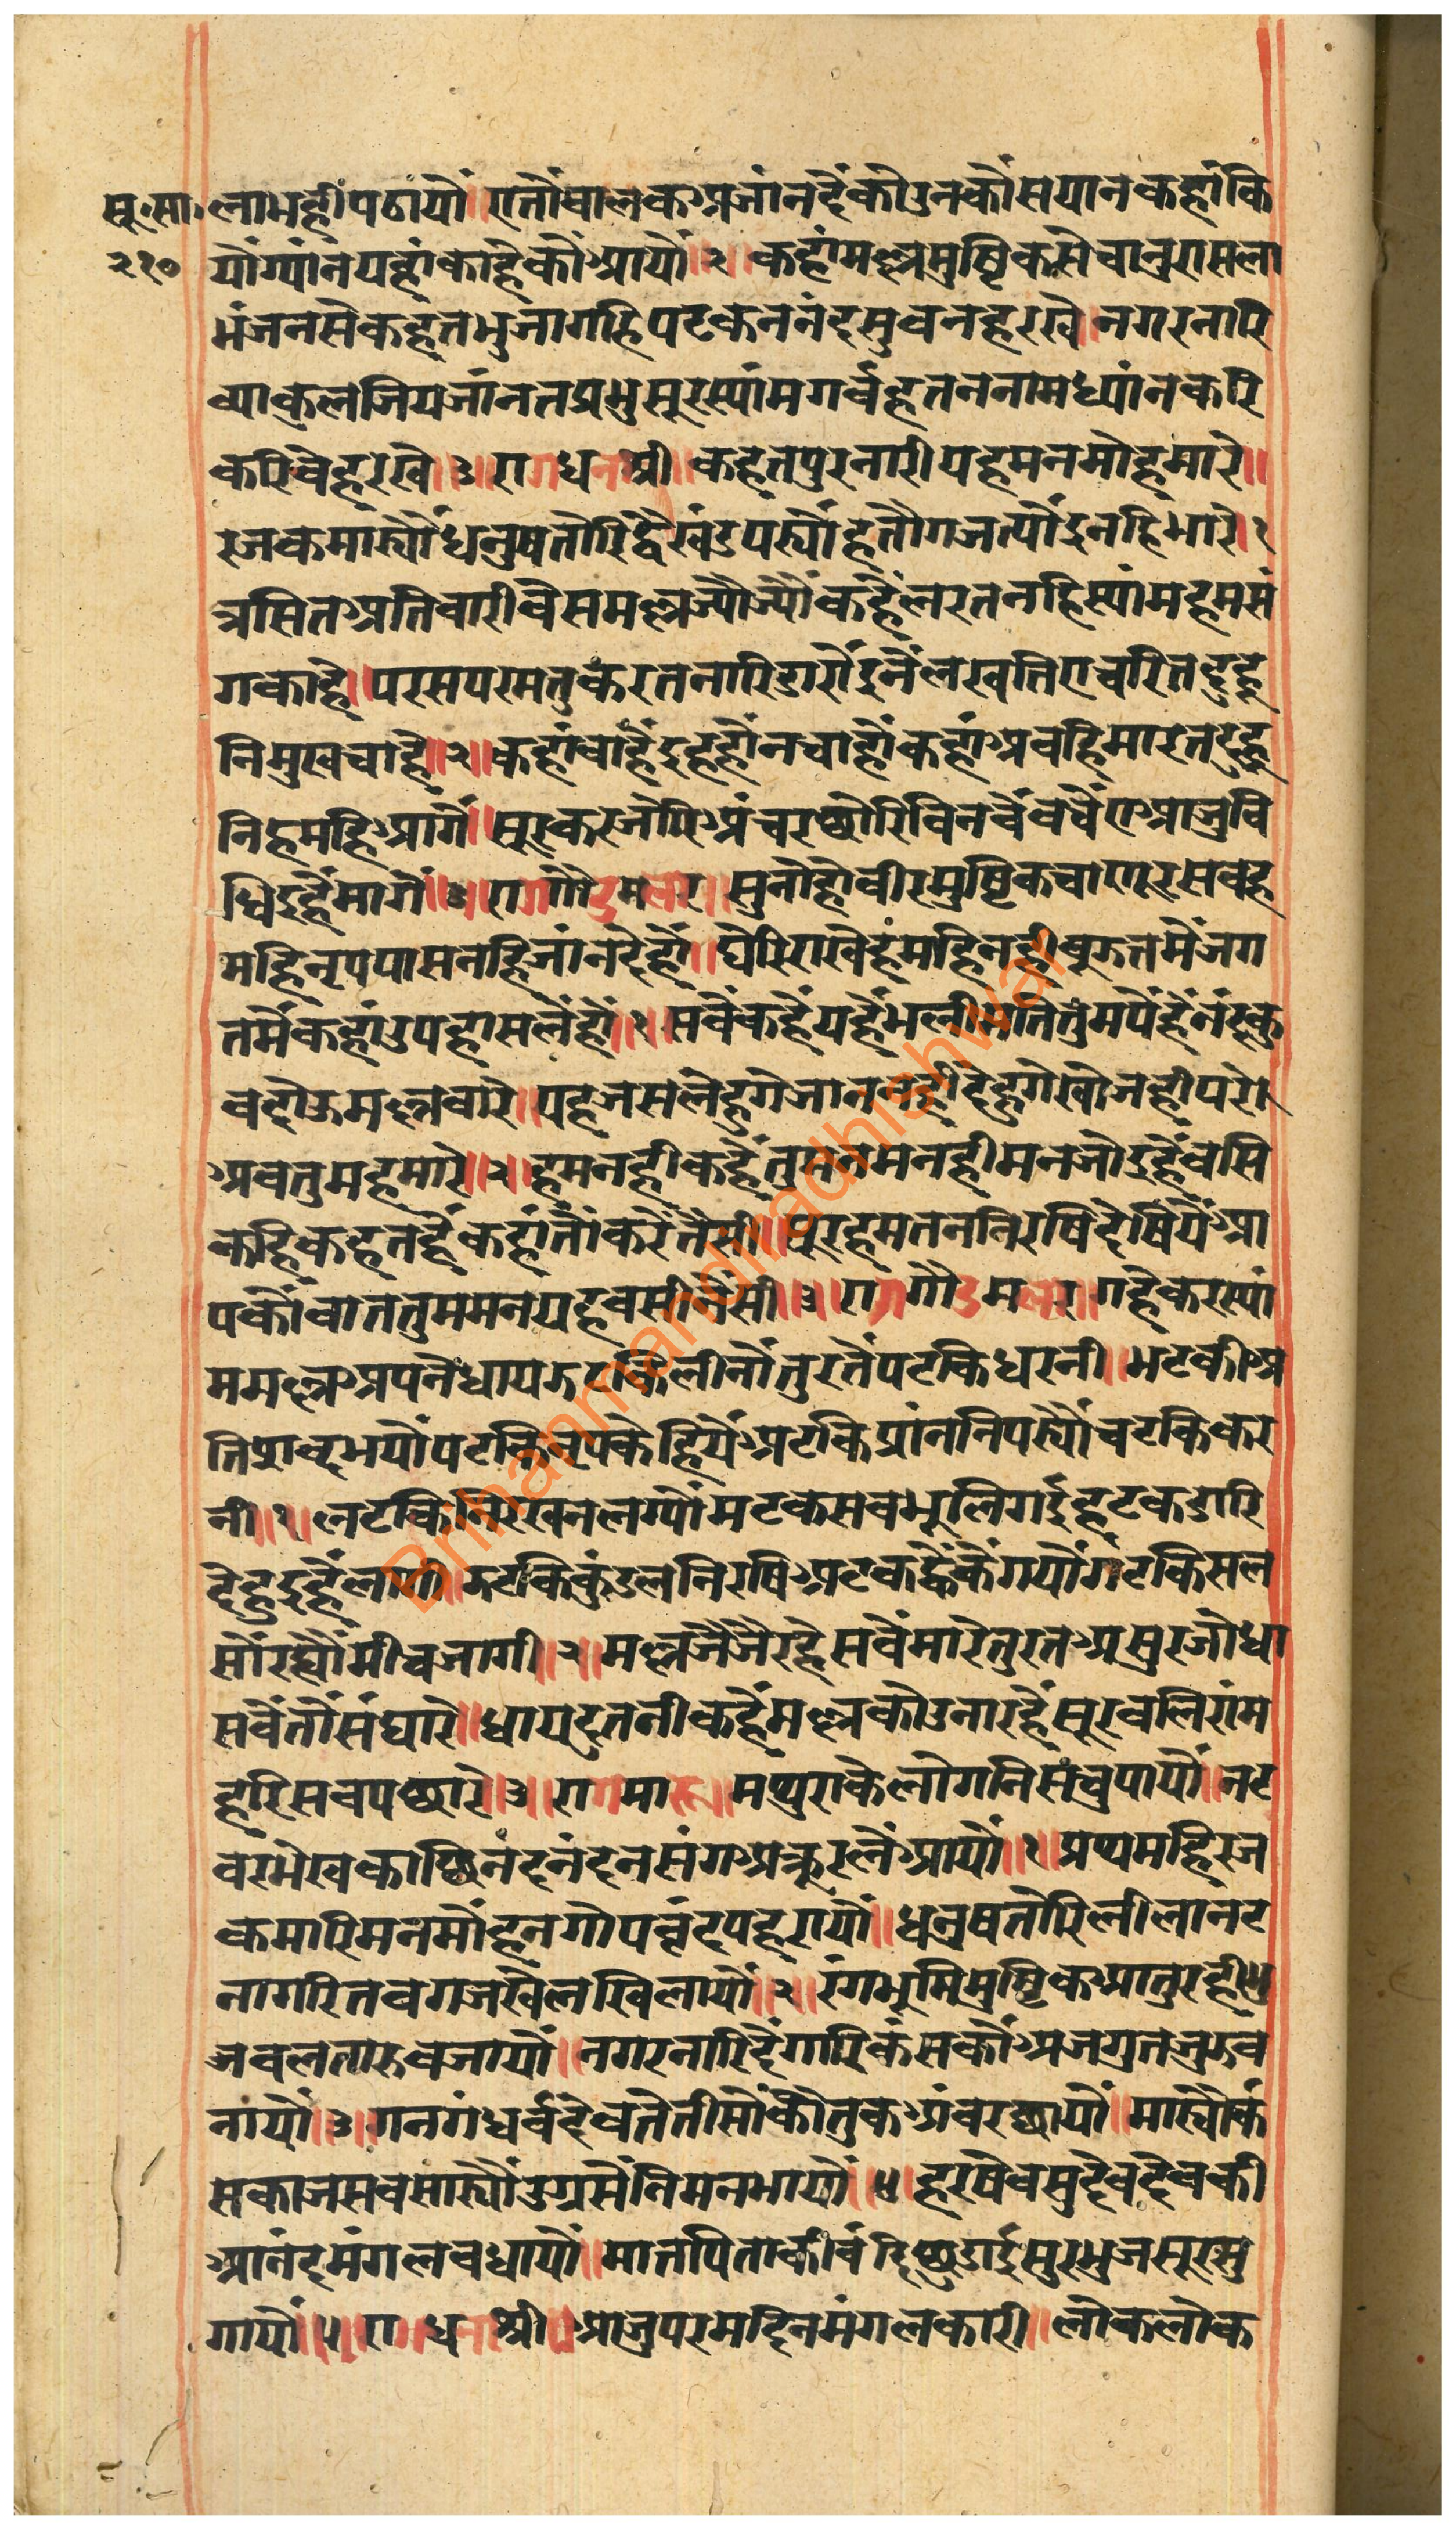 सू.सा. लामहीपठायौं॥एतौंबालकअजांनहैंकोउनकौंसयानकहांकि
२१० यौंग्यांनयहांकाहेकौंआयौं॥२॥कहांमल्लमुष्टिकसेचानुरासला
भंजनसेकहतभुजागहिपटकननंदसुवनहरखे॥नगरनारि
व्याकुलजियजांनतप्रभुसूरस्यांमगर्वहतननामध्यांनकरि
करिवेहरखे॥३॥रागधनाश्री॥कहतपुरनारीयहमनमोहमारे॥
रजकमार्यौंधनुषतोरिद्वैखंडपर्यौहतौगजत्यौंइनहिमारे॥१
त्रसितअतिवारीवेसमल्लज्यौंज्यौंकहैंलरतनहिस्यांमहमसं
गकाहे॥परसपरमतुकरतनारिडारौंइनैलखतिएचरितदुहू
निमुखचाहे॥२॥कहांवाहैंइहहौंनचाहौंकहांअबहिमारतदुहु
निहमहिआगैं॥सूरकरजोरिअंचरछोरिविनवेंवचेंएआजुवि
धिइहैंमागैं॥३॥रागगौडमलार॥सुनौहोवीरमुष्टिकचाणूरसबह
महिनृपपासनहिजांनदेहौं॥घेरिराखेहमहिनहीबुझतमेंजग
तमेंकहांउपहासलेंहौं॥१॥सबैंकहैंयहैंभलीमतितुमपैंहैंनंदकु
वरदोऊमल्लवारे॥यहजसलेहुगेजाननहींदेहुगेखोजहीपरो
अबतुमहमारे॥२॥हमनहीकहेंतुमनमनहीमनजोइहैंबसि
कहिकहतहैंकहांतौंकरेंतैसी॥सूरहमतननिरषिदेषियैंआ
पकौंवाततुममनयहबसीनैंसी॥३॥रागगौडमलार॥गहेकरस्यां
ममल्लअपनैधायझटकिलीनौंतुरतैपटकिधरनी॥भटकीअ
तिशब्दभयौंपटकिनृपकेहियेंअटकिप्रांननिपर्यौंचटकिकर
नी॥१॥लटकिनिरखनलग्यौंमटकसबभूलिगईहटकडारि
देहुइहैंलागी॥झटकिकुंडलनिरषिअटकव्हैकैंगयौंगटकिसल
सौंरह्यौंमीचजागी॥२॥मल्लजेजेरहेसबेंमारेतुरतअसुरजोधा
सबैंतौसंघारे॥धायदूतनीकहैंमल्लकोउनारहैंसूरवलिरांम
हरिसबपछारे॥३॥रागमारू॥मथुराकेलोगनिसचुपायौं॥नट
वरभेखकाछिनंदनंदनसंगअक्रूरलैंआयौं॥१॥प्रथमहिरज
कमारिमनमोंहनगोपवृंदपहरायौं॥धनुषतोरिलीलानट
नागरितबगजखेलखिलायौं॥२॥रंगभूमिमुष्टिकआतुरहीभु
जबलतारुबजायौं॥नगरनारिदेंगारिकंसकौंअजगुतजुझब
नायौं॥३॥गनगंधर्वदेवतेतीसौंकौतुकअंबरछायौं॥मार्यौंकं
सकाजसबसार्यौंउग्रसैंनिमनभायौं॥४॥हरषेवसुदेवदेवकी
आनंदमंगलबधायौं॥मातपिताकीबंदिछुडाईसुरभुजसूरसु
गायौं॥५॥रागधनाश्री॥आजुपरमदिनमंगलकारी॥लोकलोक